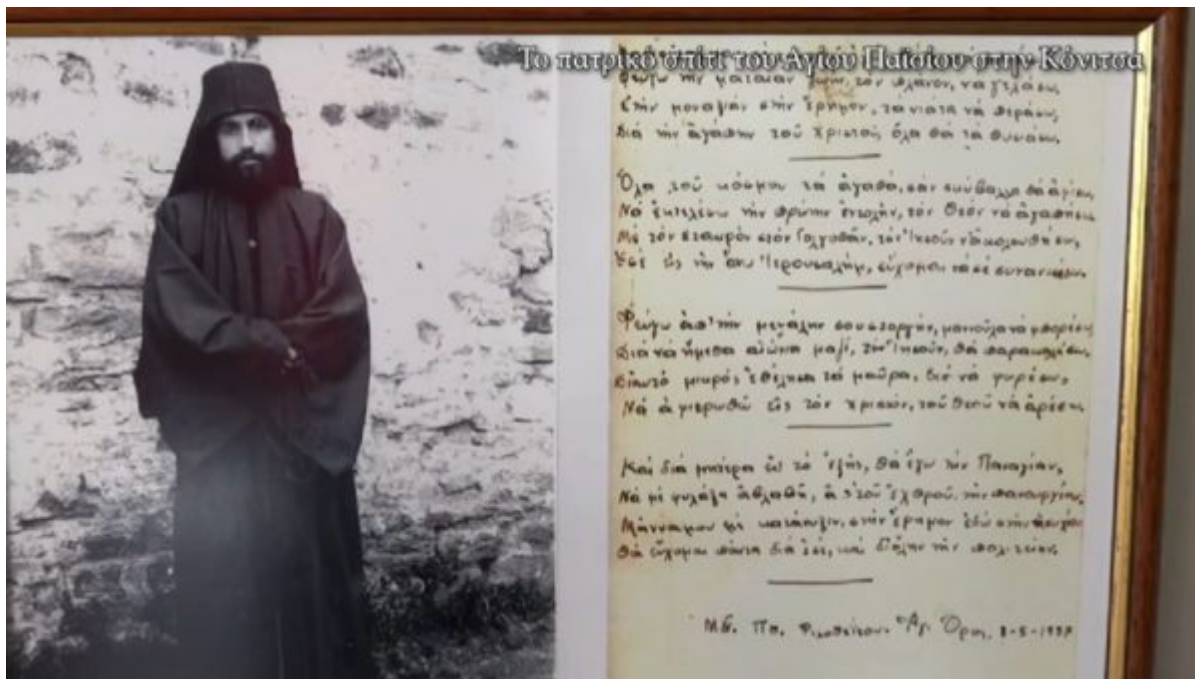 Το πατρικό σπίτι του Αγίου Παϊσίου στην Κόνιτσα
Φεύγω τὴν ματαίαν ζωήν, τὸν πλάνον, νὰ γελάσω,
Στὴν μοναξιάν στὴν ἔρημον, τὰ νιάτα νὰ περάσω,
Διὰ τὴν ἀγάπην τοῦ Χριστοῦ, ὅλα θὰ τὰ θυσιάσω.
Ὅλα τοῦ κόσμου τὰ ἀγαθά, σὰν σκύβαλλα θὰ ἀφίσω,
Νὰ ἐκτελέσω τὴν πρώτην ἐντολήν, τὸν Θεὸν νὰ ἀγαπήσω
Μὲ τὸν σταυρὸν στὸν Γολγοθᾶν, τὸν Ἰησοῦν νὰ ἀκολουθήσω,
εἰς τὴν ἄνω Ἱερουσαλήμ, εὔχομαι νὰ σὲ συναντήσω.
Φεύγω ἀπ' τὴν μεγάλην σου στοργήν, μανούλα νὰ μπορέσω
Διὰ νὰ ἤμεθα αἰώνια μαζί, τὸν Ἰησοῦν, θὰ παρακαλέσω.
Δι' αὐτὸ μικρός, ἐθέλησα τὰ μαῦρα, διὰ νὰ φορέσω,
Νὰ ἀφιερωθῶ εἰς τὸν Χριστόν, τοῦ Θεοῦ νὰ ἀρέσω.
Καὶ διὰ μητέρα εἰς τὸ ἑξῆς, θὰ ἔχω τὴν Παναγίαν,
Νὰ μὲ φυλάξη ἀβλαβῆ, ἀπ' τοῦ ἐχθροῦ, τὴν πανουργίαν,
Μάννα μου μὲ κατάνυξιν, στὴν ἔρημον ἐδῶ στὴν ἡσυχίαν
Θὰ εὔχομαι πάντα διὰ σέ, καὶ δι' ὅλην τὴν πολιτείαν.
Φιλοθεΐτου. Ἁγ. Ὄρος, 8-5-1957